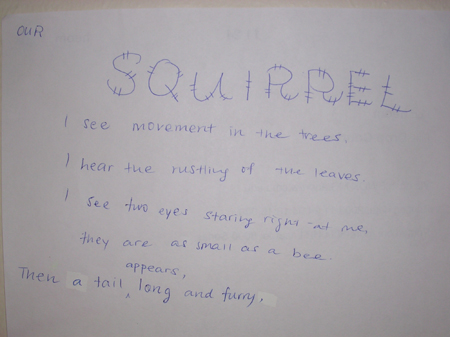 OUR
SQUIRREL
I see movement in the trees.
I hear the rustling of the leaves.
I see two eyes staring right at me,
they are as small as a bee.
appears,
Then a tail, long and furry.